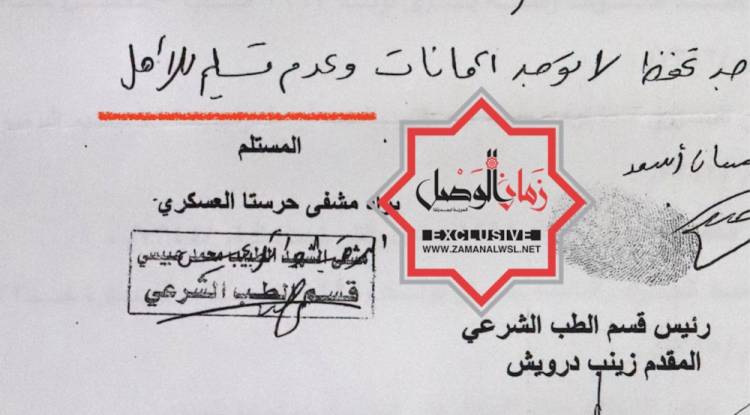 تحفظ لا يوجد امانات وعدم تسليم للاهل
المستلم
براد مشفى حرستا العسكري
مشفى الشهيد الطبيب محمد حبيسي
قسم الطب الشرعي
زمان الوصل
EXCLUSIVE
WWW.ZAMANALWSL.NET
أسعد
رئيس قسم الطب الشرعي
المقدم زينب درويش